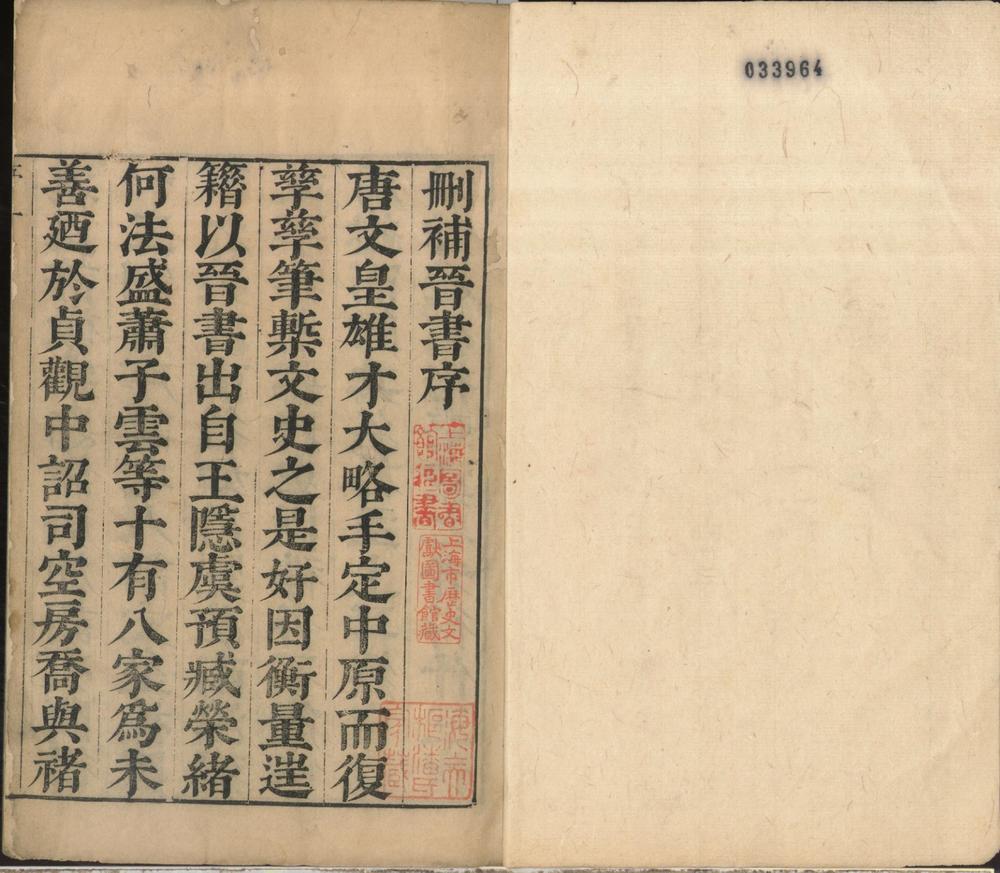 033964
刪補晉書序
唐文皇雄才大略手定中原而復
孳孳筆槧文史之是好因衡量迬
籍以晉書出自王隱虞預臧榮緒
何法盛蕭子雲等十有八家爲未
善廼於貞觀中詔司空房喬與禇
上海圖書
館藏書
上海市歷史文
獻圖書館藏